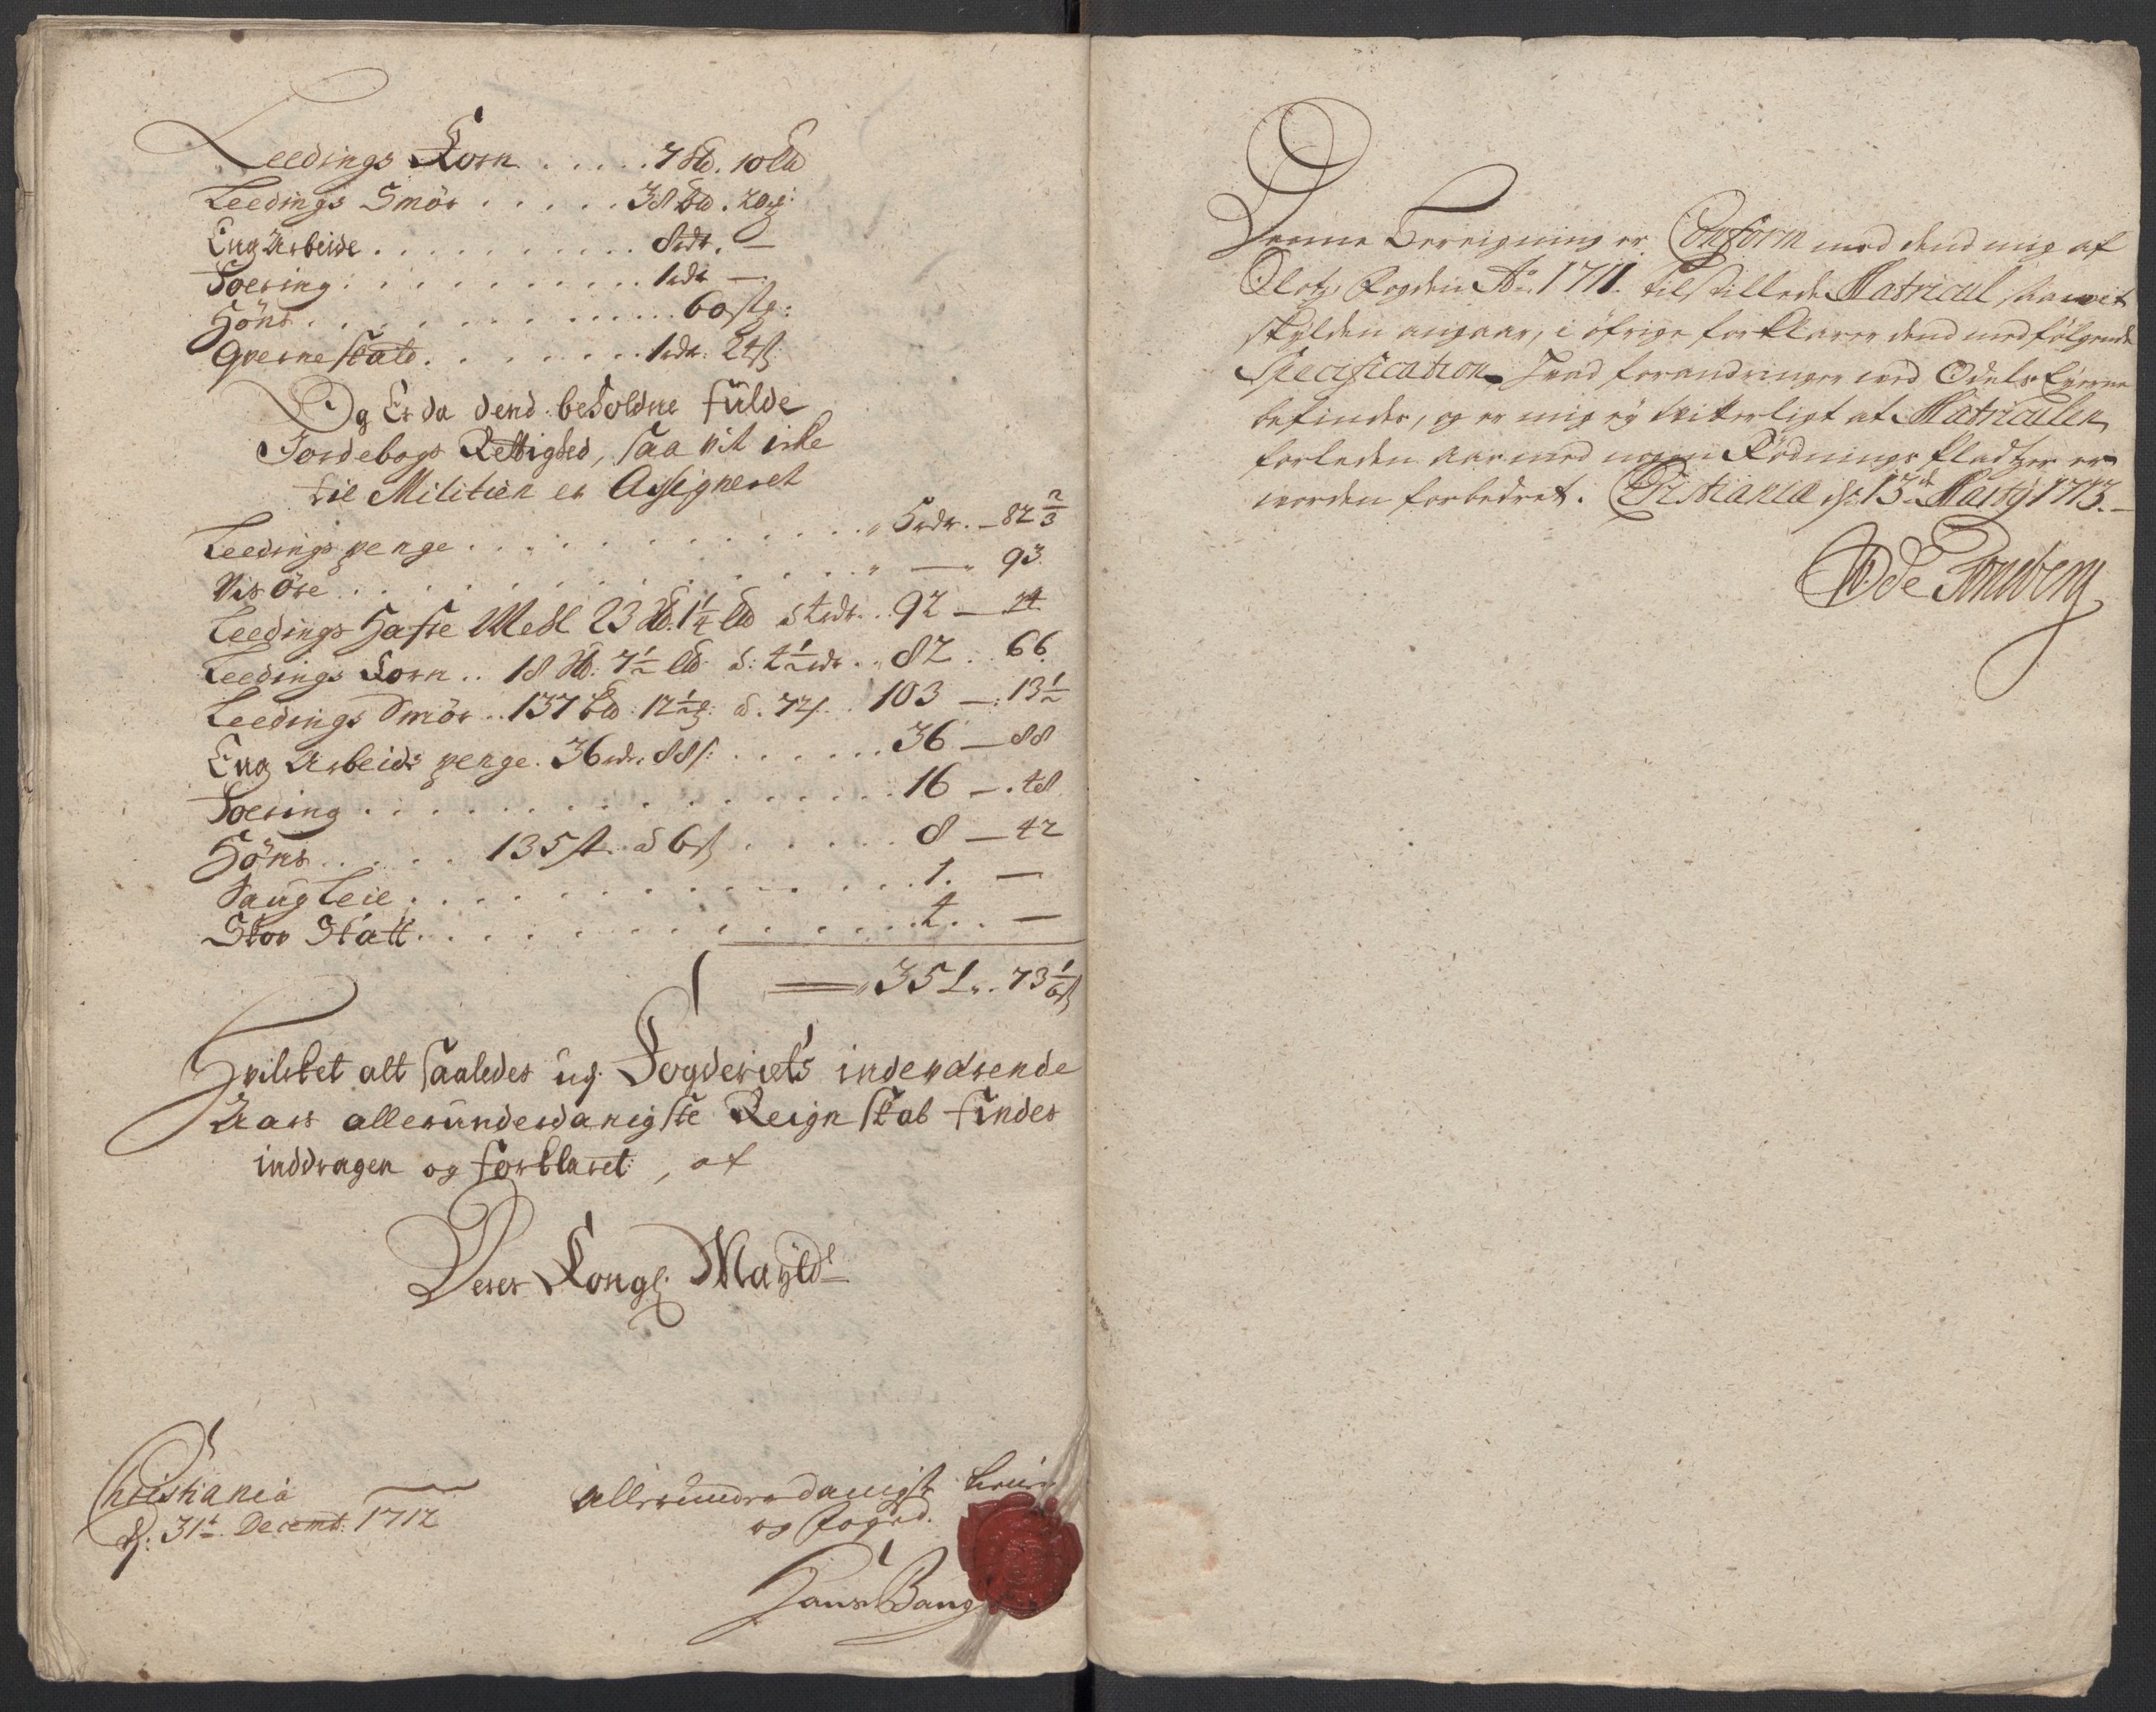 Leedings Korn . . . . . 7 Sk℔. 10 L℔
Leedings Smör . . . . . 38 b℔. 20 ℔:
Eng Arbeide . . . . . . . . . . 8 rdr. —
Foering . . . . . . . . . . 1 rdr —
Höns . . . . . . . . . . . . . 60 stk:
Qverneskatt . . . . . . . 1 rdr: 24 ß
Og Er da dend beholdne fülde
Jordebogs Rettighed, saa vit icke
til Militien er Assigneret
Leedings penge . . . . . . . . . . . . „ 5 rdr. — 82 2/3
Vis öre . . . . . . . . . . . . „ — „ 93
Leedings Hafre Meel 23 Sk℔. 1 1/4 L℔ à 4 rdr. . 92 — 24
Leedings Korn . . 18 Sk℔: 7 1/2 L℔ à: 4 1/2 rdr . „ 82 . . 66
Leedings Smör . . 137 b℔: 12 1/2 ℔: à. 72 ß . . 103 — : 13 1/2
Eng Arbeids penge. 36 rdr. 88 ß: . . . . . . 36 — 88
Foering . . . . . . . . . . . . . . . . 16 — . 48
Höns . . . . . 135 st. à 6 ß . . . . . . 8 — 42
Saugleie . . . . . . . . . . . . . . 1. —
Skov Skatt . . . . . . . . . . . . . . 4 . . —
351 „. 73 1/6 ß
Hvilcket alt saaledes udj Fogderiets indeværende
Aars alleründerdanigste Reignskab findes
inddragen og forklaret, af
Deres Kongl. Maÿtds
Christiania
d: 31t Decemb: 1712
allerunderdanigst tienner
og foged.
Hans Bang
Denne Bereigning er Conform med dend mig af
Slotz Fogden Ao 1711 tilstillede Matricul, saa vit
skÿlden angaar, i öfrige forklarer dend medfölgende
Specification hvad forandringer ved Odels Eÿerne
befindes, og er mig eÿ vitterligt at Matriculen
forleden aar med nogen Rödnings pladtzer er
worden forbedret. Christiania d: 13de Martÿ 1713.
W de Tonsberg